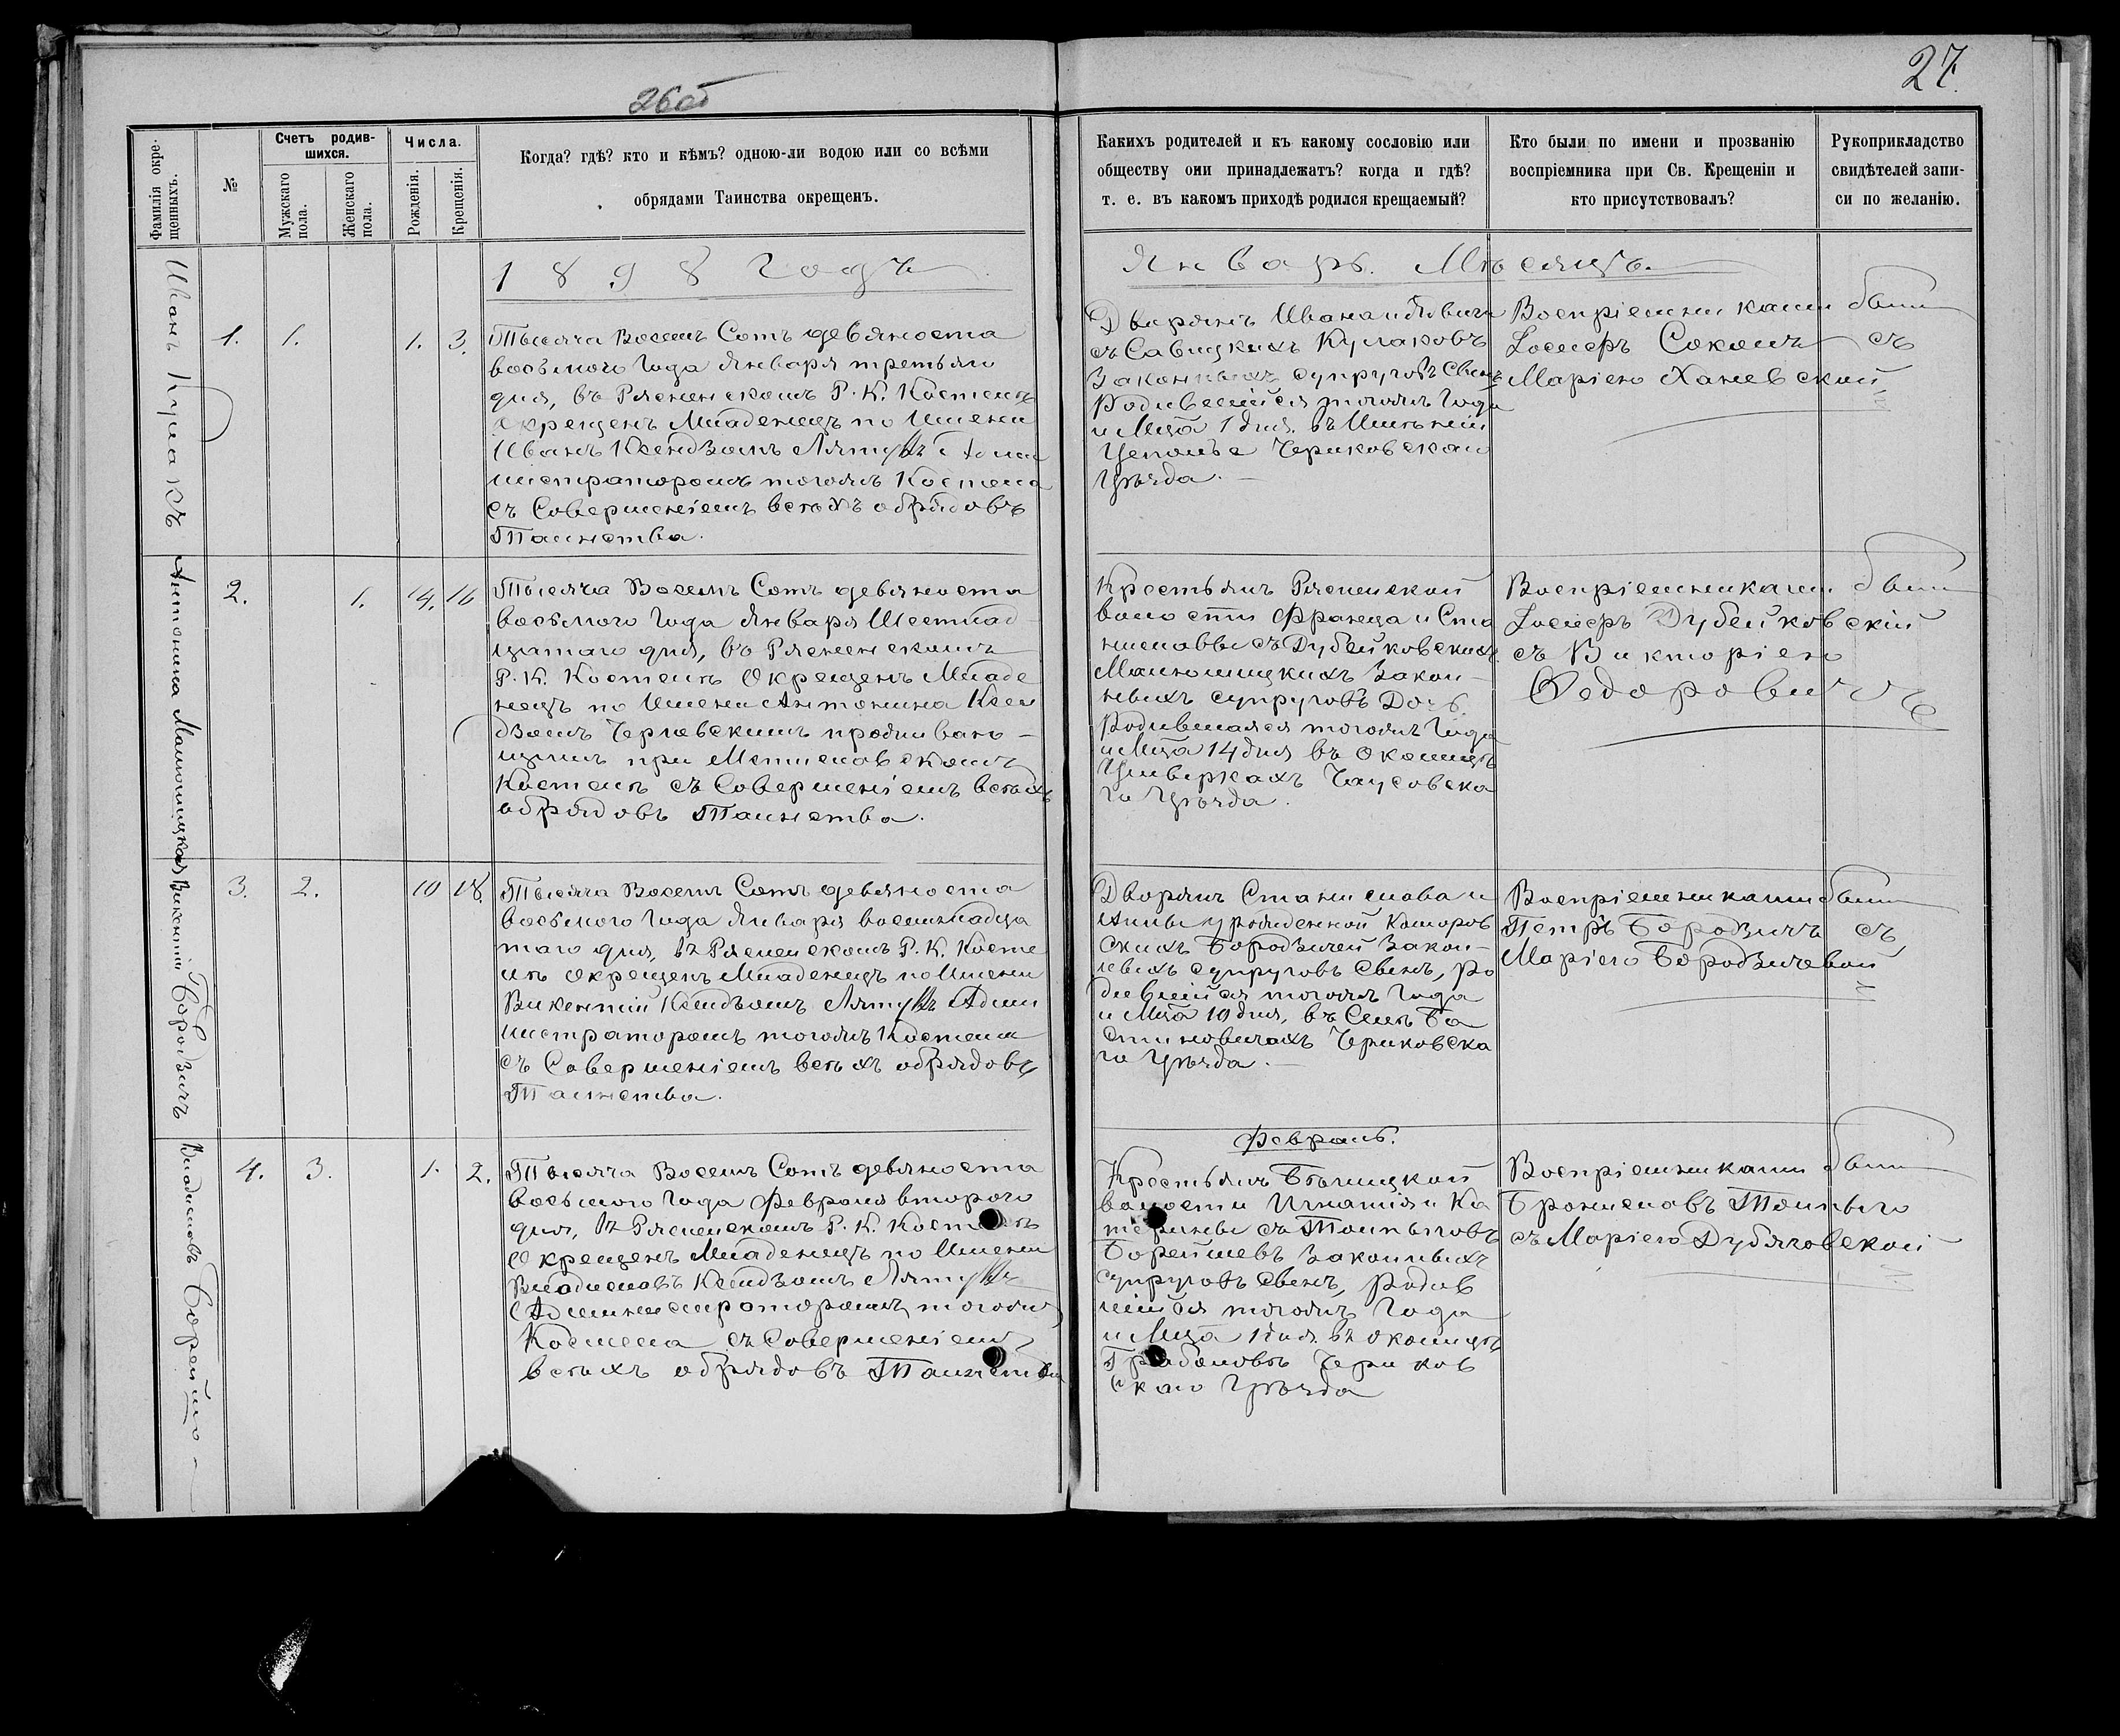 26об
27.
Фамилія окре-
щенныхъ.
№
Счетъ родив-
шихся.
Мужскаго
пола.
Женскаго
пола.
Числа.
Рожденія.
Крещенія.
Когда? гдѣ? кто и кѣмъ? одною-ли водою или со всѣми
обрядами Таинства окрещенъ.
Какихъ родителей и къ какому сословію или
обществу они принадлежатъ? когда и гдѣ?
т. е. въ какомъ приходѣ родился крещаемый?
Кто были по имени и прозванію
воспріемника при Св. Крещеніи и
кто присутствовалъ?
Рукоприкладство
свидѣтелей запи-
си по желанію.
1898 Годъ
Январь Мѣсяцъ.
Иванъ Кулакъ
1. 1. 1. 3.
Тысяча Восемь Сотъ девяноста
восьмого Года Января третьяго
дня, въ Рясненскомъ Р. К. Костелѣ
Окрещенъ Младенецъ по Имени
Иванъ Ксендзомъ Адми
нистраторомъ тогожъ Костела
съ Совершеніемъ всѣхъ обрядовъ
Таинства.
Дворянъ Ивана и
съ Савицкихъ Кулаковъ
Законныхъ супруговъ Сынъ
Родившійся тогожъ Года
и Мца 1 дня въ Имѣніи
Чериковскаго
Уѣзда.
Воспріемниками были
Іосифъ Соколъ съ
Маріею Ханевской
Антонина
2. 1. 14. 16
Тысяча Восемь Сотъ девяноста
восьмого Года Января Шестнад
цатаго дня, въ Рясненскомъ
Р. К. Костелѣ Окрещенъ Младе
нецъ по Имени Антонина Ксен
дзомъ проживаю-
щимъ при Мстиславскомъ
Костелѣ съ Совершеніемъ всѣхъ
обрядовъ Таинства.
Крестьянъ Рясненской
волости Франца и Ста
ниславы съ Дубейковскихъ
Закон-
ныхъ супруговъ Дочь.
Родившаяся тогожъ Года
и Мца 14 дня въ Околицѣ
Чаусовска
го Уѣзда.
Воспріемниками были
Іосифъ Дубейковскій
съ Викторіею
Федоровичъ
Викентій Бородзичъ
3. 2. 10 18.
Тысяча Восемь Сотъ девяноста
восьмого Года Января восемнадца
таго дня, въ Рясненскомъ Р. К. Косте
лѣ Окрещенъ Младенецъ по Имени
Викентій Ксендзомъ Адми
нистраторомъ тогожъ Костела
съ Совершеніемъ всѣхъ обрядовъ
Таинства.
Дворянъ Станислава и
Анны урожденной
Бородзичей Закон-
ныхъ супруговъ Сынъ, Ро
дившійся тогожъ Года
и Мца 10 дня, въ Селѣ Ба
Чериковска
го Уѣзда.
Воспріемниками были
Петръ Бородзичъ съ
Маріею Бородзичевой
Февраль.
Владиславъ Борейшо
4. 3. 1. 2.
Тысяча Восемь Сотъ девяноста
восьмого Года Февраля второго
дня, въ Рясненскомъ Р. К. Костелѣ
Окрещенъ Младенецъ по Имени
Владиславъ Ксендзомъ
Администраторомъ тогожъ
Костела съ Совершеніемъ
всѣхъ обрядовъ Таинства
Крестьянъ
волости Игнатія и Ка
терины съ
Борейшевъ Законныхъ
супруговъ Сынъ, Родив
шійся тогожъ Года
и Мца 1 дня въ Околицѣ
Чериков
скаго Уѣзда
Воспріемниками были
Брониславъ
съ Маріею Дубяговской